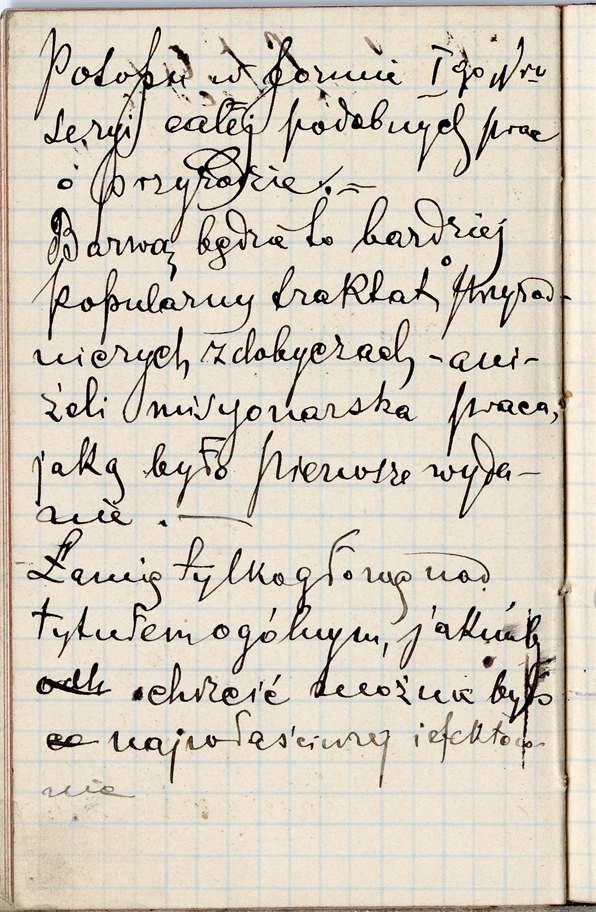 Potopu w formie I go Nru
seryi całej podobnych prac
o przyrodzie. –
Barwą będzie to bardziej
popularny traktat o przyrod-
niczych zdobyczach – ani-
żeli misyonarska praca,
jaką było pierwsze wyda-
nie. —
Łamię tylko głowę nad
tytułem ogólnym, jakimby
ochrzcić można było
najwłaściwiej i efektow-
nie